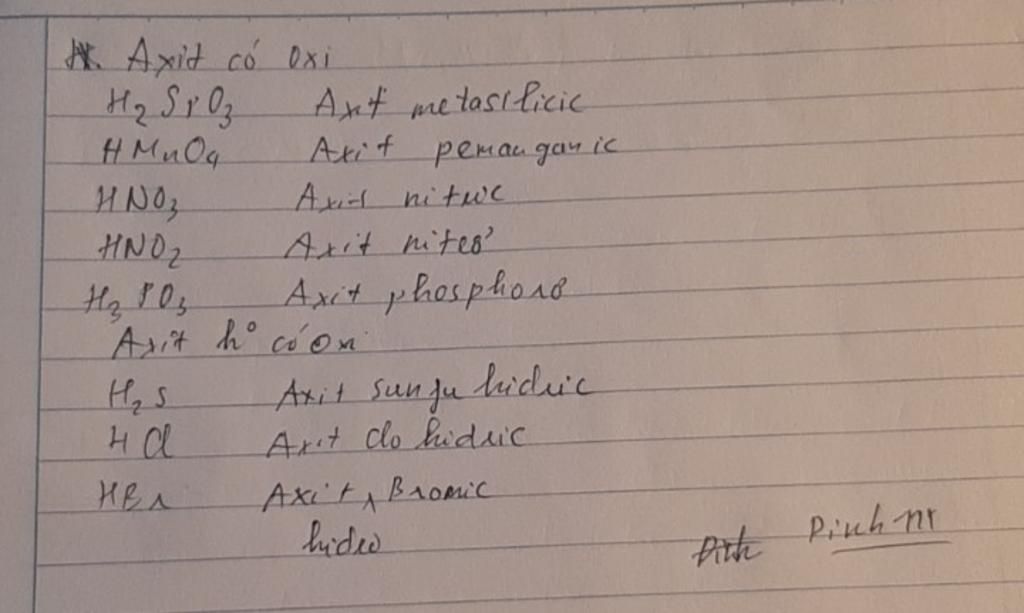 *. Axit có oxi
H2SiO3 Axit metasilicic
HMnO4 Axit pemanganic
HNO3 Axit nitric
HNO2 Axit nitrơ
H3PO3 Axit phosphorơ
Axit ho có Oxi
H2S Axit sunfu hidric
HCl Axit clo hidric
HBr Axit ∧ Bromic
hidro
Pinh nt